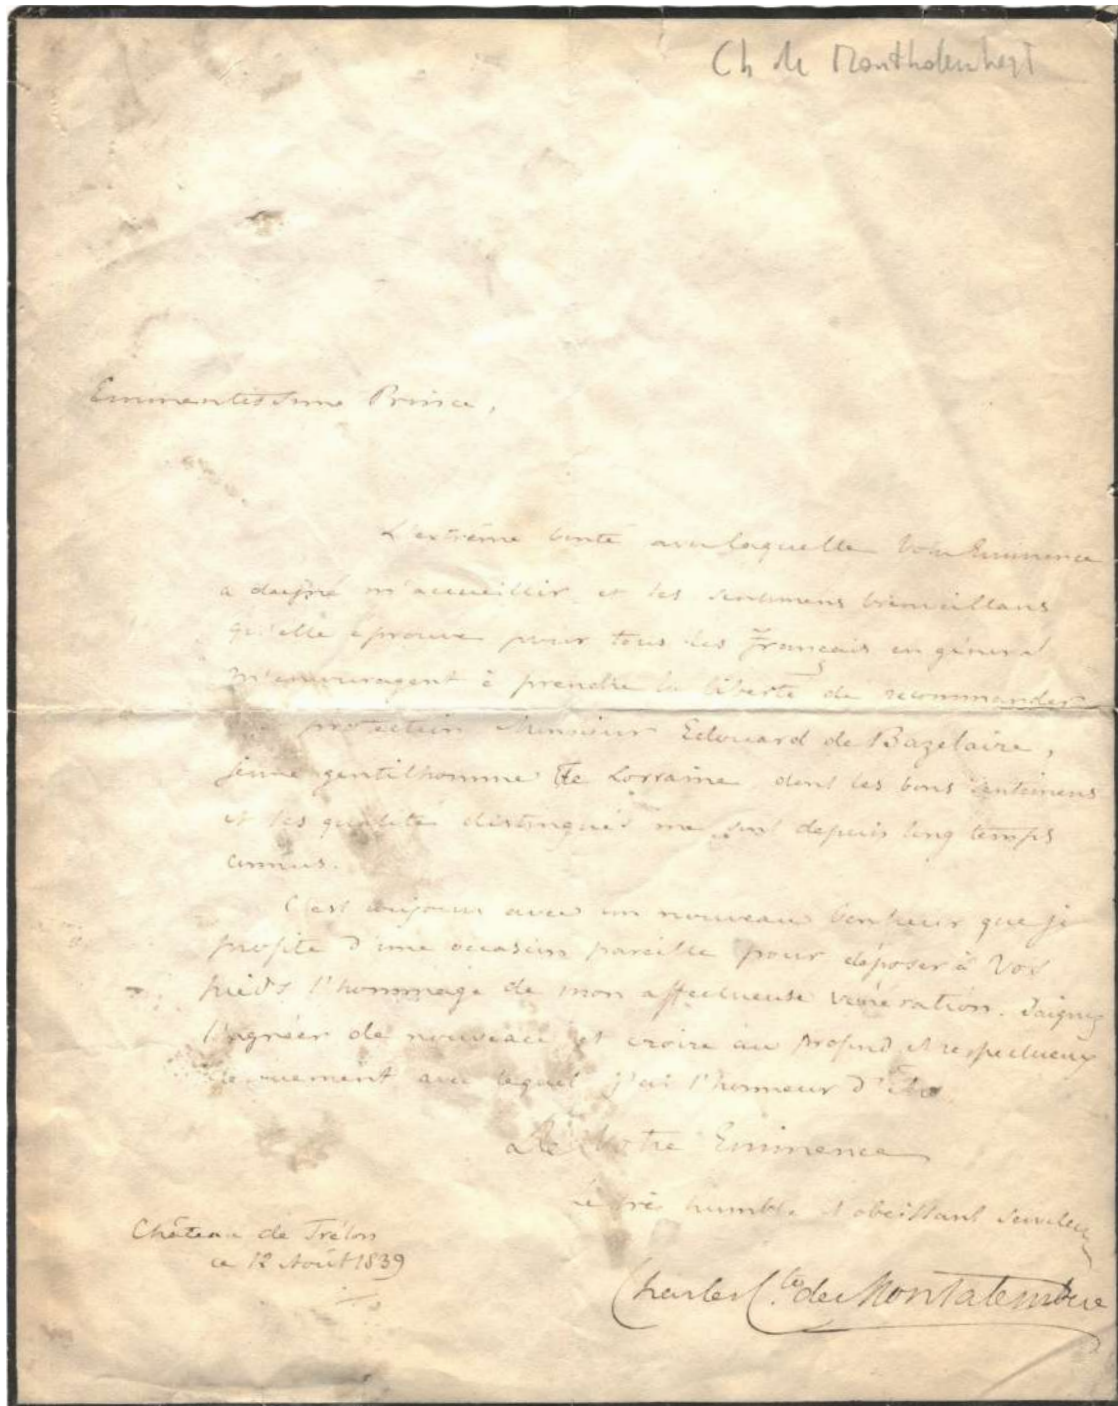 Ch de Montholembert
Eminentissime Prince,
L'extrême bonté avec laquelle Votre Eminence
a daigné m'accueillir et les sentimens bienveillans
qu'elle éprouve pour tous les Français en général
m'encouragent à prendre la liberté de recommander
protection Monsieur Edouard de Bazelaire,
jeune gentilhomme de Lorraine dont les bons sentimens
et les qualités distinguées me sont depuis long temps
connus.
C'est toujours avec un nouveau bonheur que je
profite d'une occasion pareille pour déposer à Vos
pieds l'hommage de mon affectueuse vénération. Daignez
l'agréer de nouveau et croire au profond et respectueux
dévouement avec lequel j'ai l'honneur d'être
De Votre Eminence
Le très humble et obéissant serviteur
Château de Trélon
ce 12 Août 1839
Charles Cte. de Montalembert